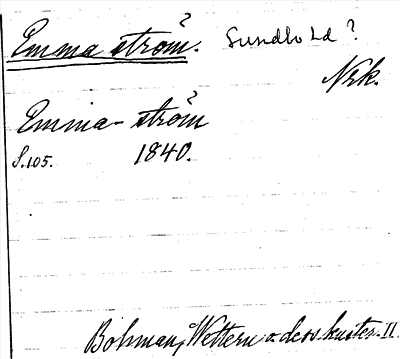 Emma ström. Sundlold?
Nrk.
Emma-ström
S.105. 1840.
Bohman, Wettern o. dess kuster. II.